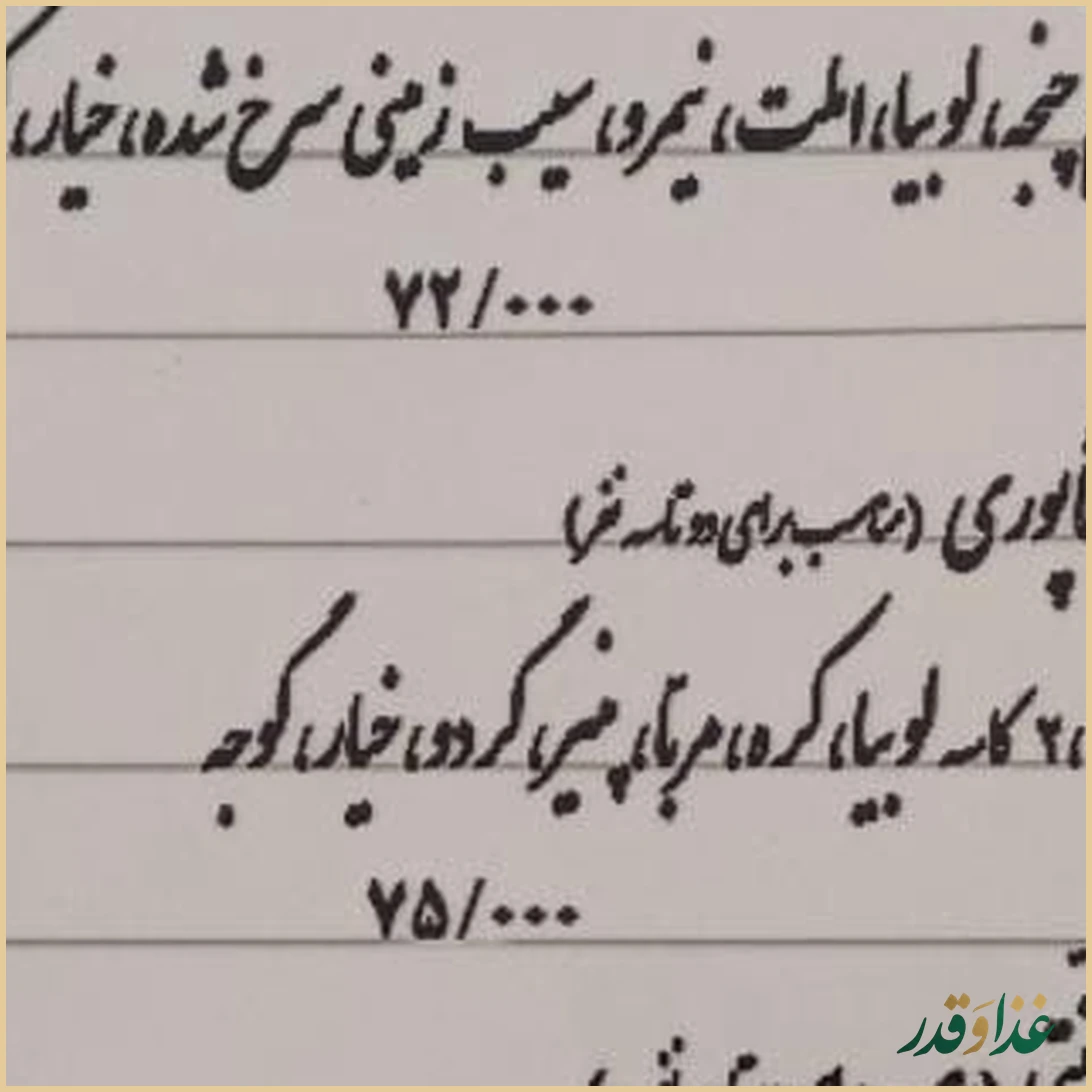 چنجه، لوبیا، املت، نیمرو، سیب زمینی سرخ شده، خیار،
۷۲/۰۰۰
(مناسب برای دو تا سه نفر)
۲ کاسه لوبیا، کره، مربا، پنیر، گردو، خیار، گوجه
۷۵/۰۰۰
غذا و قدر